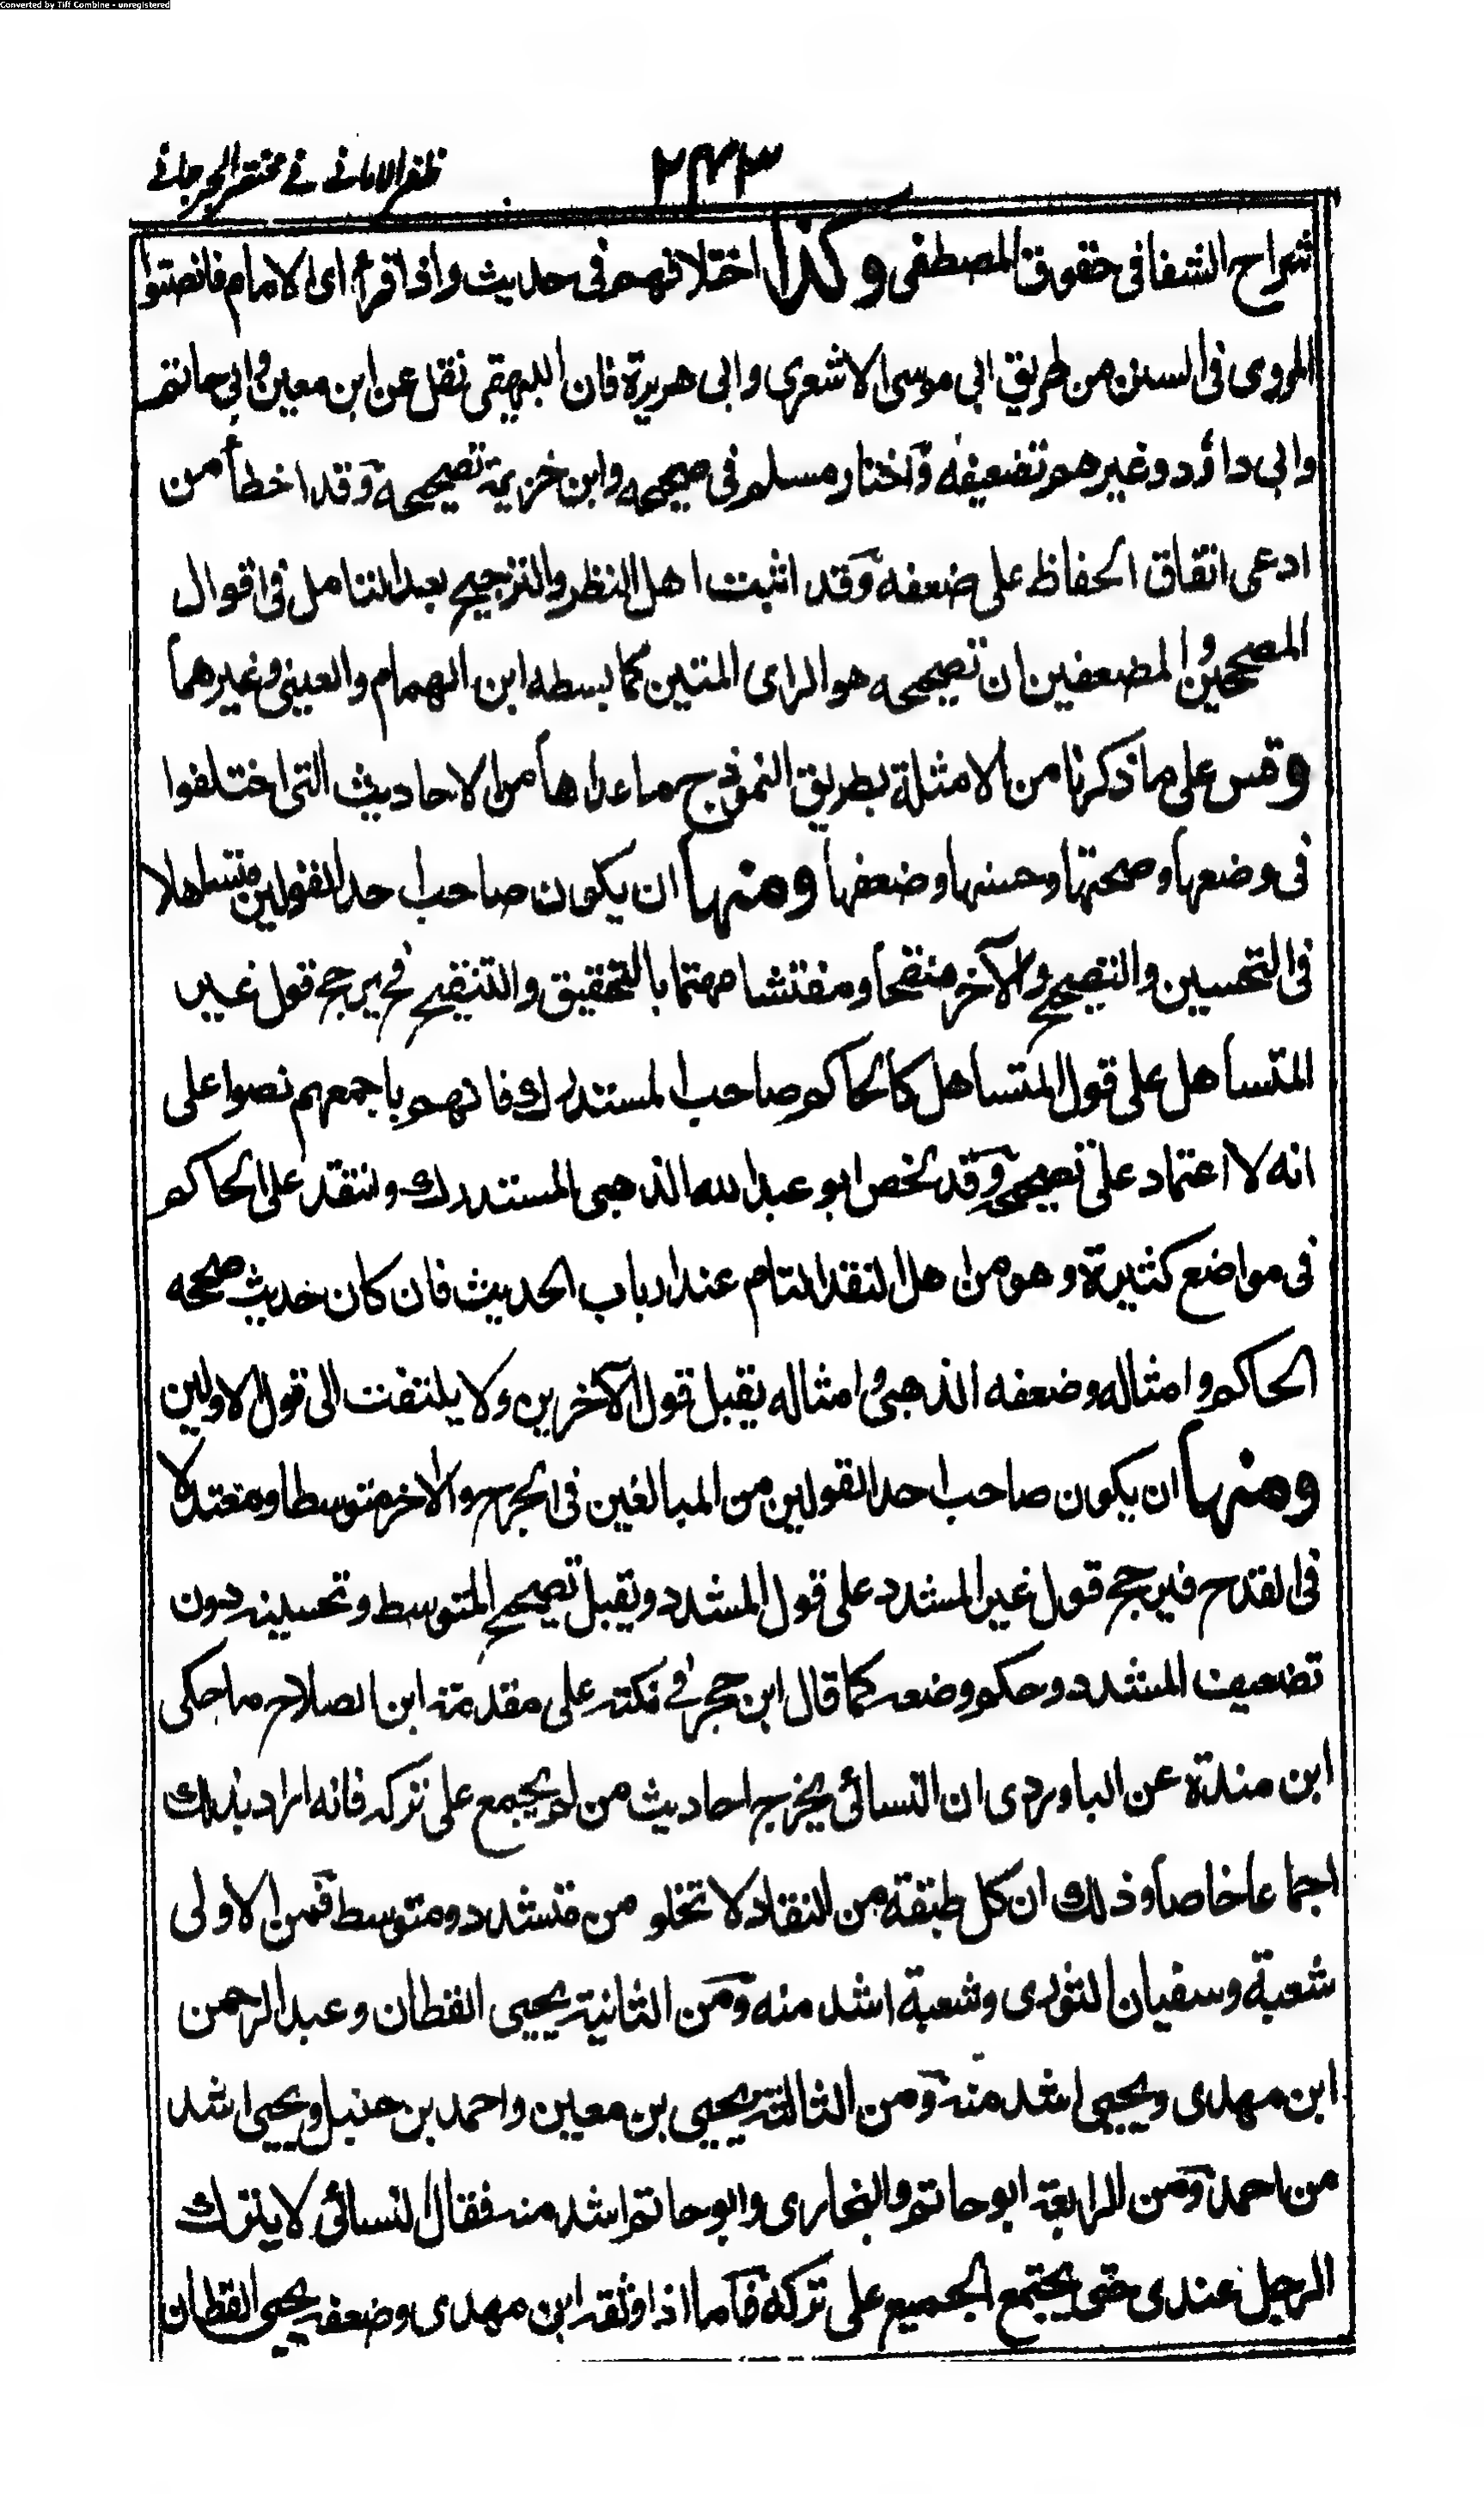 Converted by Tiff Combine - unregistered
ظفر الامانی فی مختصر الجرجانی
٢٤٣
شراح الشفا فی حقوق المصطفی وكذا اختلافهم فی حدیث واذا قرأ ای الامام فانصتوا
المروی فی السنن من طریق ابی موسی الاشعری وابی هریرة فان البیهقی نقل عن ابن معین وابی حاتم
وابی داؤد وغیرهم تضعیفه واختار مسلم فی صحیحه وابن خزیمة تصحیحه وقد اخطأ من
ادعی اتفاق الحفاظ علی ضعفه وقد اثبت اهل النظر والترجیح بعد التامل فی اقوال
المصححین والمضعفین ان تصحیحه هو الرای المتین كما بسطه ابن الهمام والعینی وغیرهما
وقس علی ما ذكرنا من الامثلة بطریق النموذج ما عداها من الاحادیث التی اختلفوا
فی وضعها وصحتها وحسنها وضعفها ومنها ان یكون صاحب احد القولین متساهلا
فی التحسین والتصحیح والآخر منقحا ومفتشا مهتما بالتحقیق والتنقیح فح یرجح قول غیر
المتساهل علی قول المتساهل كالحاكم صاحب المستدرك فانهم باجمعهم نصوا علی
انه لا اعتماد علی تصحیحه وقد لخص ابو عبد الله الذهبی المستدرك وانتقد علی الحاكم
فی مواضع كثیرة وهو من اهل النقد التام عند ارباب الحدیث فان كان حدیث صححه
الحاكم وامثاله وضعفه الذهبی وامثاله یقبل قول الآخرین ولا یلتفت الی قول الاولین
ومنها ان یكون صاحب احد القولین من المبالغین فی الجرح والاخر متوسطا ومعتدلا
فی القدح فیرجح قول غیر المشدد علی قول المشدد ویقبل تصحیح المتوسط وتحسینه دون
تضعیف المشدد وحكم وضعه كما قال ابن حجر فی نكته علی مقدمة ابن الصلاح ما حكی
ابن مندة عن الباوردی ان النسائی یخرج احادیث من لم یجمع علی تركه فانه اراد بذلك
اجماعا خاصا وذلك ان كل طبقة من النقاد لا تخلو من متشدد ومتوسط فمن الاولی
شعبة وسفیان الثوری وشعبة اشد منه ومن الثانیة یحیی القطان وعبد الرحمن
ابن مهدی ویحیی اشد منه ومن الثالثة یحیی بن معین واحمد بن حنبل ویحیی اشد
من احمد ومن الرابعة ابو حاتم والبخاری وابو حاتم اشد منه فقال النسائی لا یترك
الرجل عندی حتی یجتمع الجمیع علی تركه فاما اذا وثقه ابن مهدی وضعفه یحیی القطان